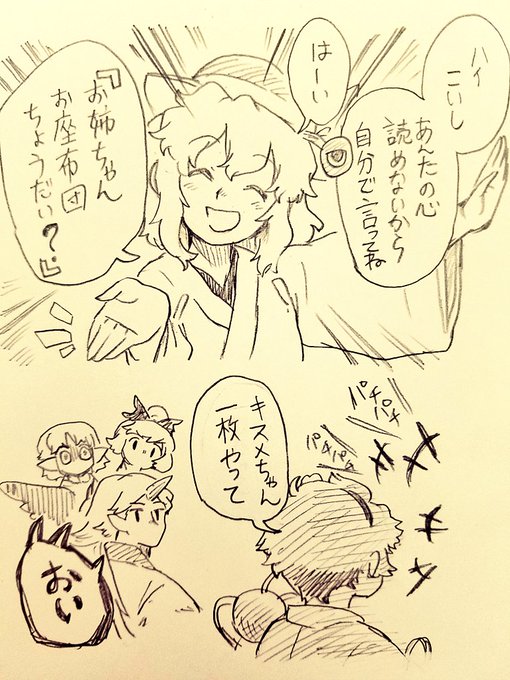 ハイ
こいし
あんたの心
読めないから
自分で言ってね
はーい
『お姉ちゃん
お座布団
ちょうだい？』
パチパチ
パチパチ
キスメちゃん
一枚やって
おい